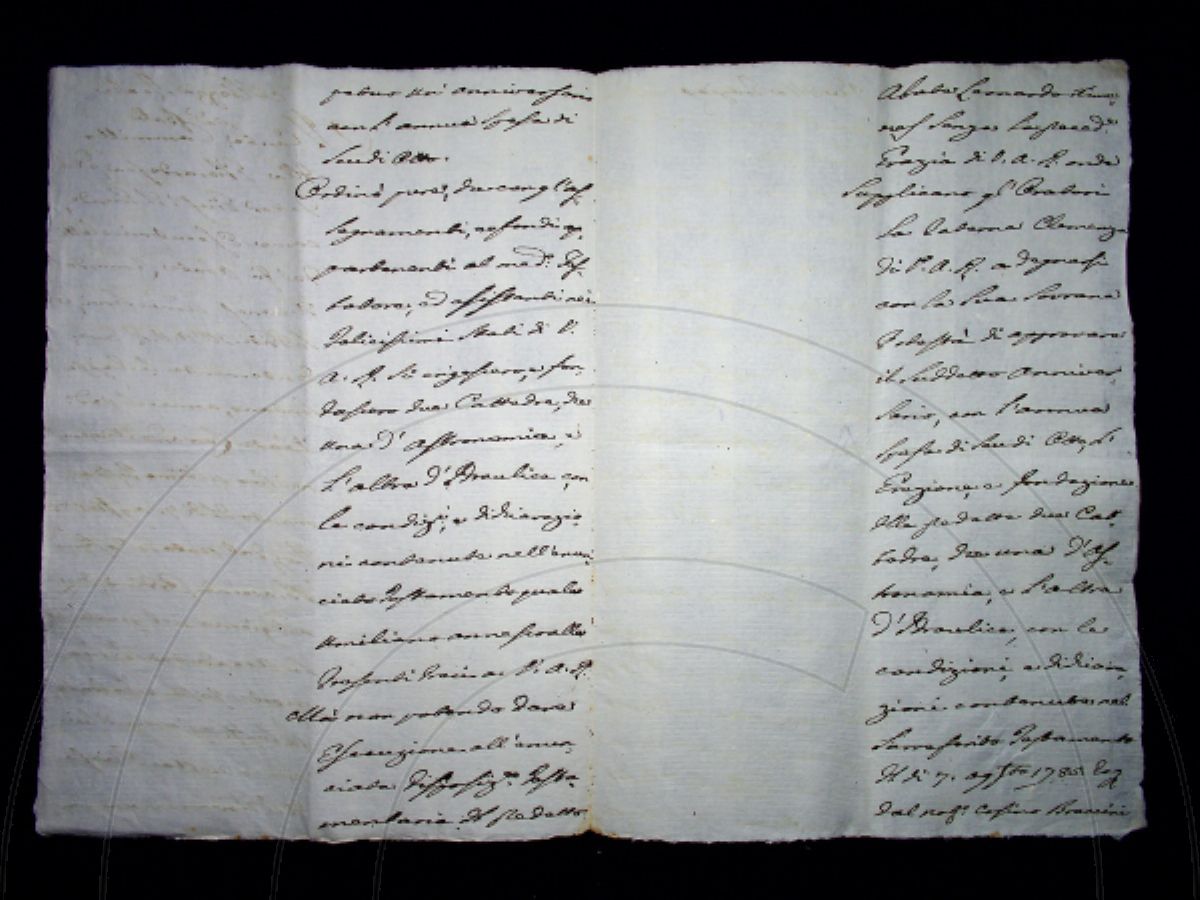 petuo un anniversario
con l'annua spesa di
Scudi Otto.
Ordinò però, che cong l'as
segnamenti, e fondi ap
partenenti al med.º Tes
tatore, ed esistenti nei
Felicissimi Stati di V.
A. R. si erigessero, e fon
dassero due Cattedre, che
una d'Astronomia, e
l'altra d'Idraulica, con
le condiz.i, e dichiarazio
ni contenute nell'enun
ciato Testamento quale
umiliano annesso alle
presenti preci a V. A. R.
Mà non potendo dare
Esecuzione all'enun
ciata disposiz.ne Testa
mentaria del predetto
Abate Leonardo
senza la preced.te
Grazia di V. A. R. onde
Supplicano gl'Oratori
La Paterna Clemenza
di V. A. R. a degnarsi
con la Sua Sovrana
Potestà di approvare
il suddetto Anniver
sario, con l'annua
spesa di Scudi Otto, l'
Erezione, e fondazione
delle predette due Cat
tedre, che una d'As
tronomia, e l'altra
d'Idraulica, con le
condizioni, e dichiara
zioni contenute nel
Sarriferito Testamento
del dì 7. agosto 1786. rog
dal not.º Cosimo Braccini